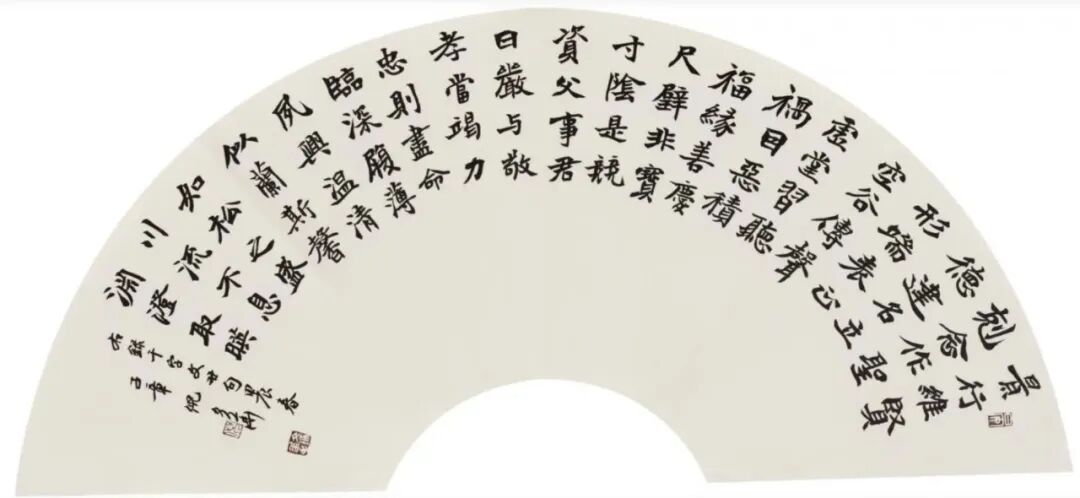 景行維賢
剋念作聖
德建名立
形端表正
空谷傳聲
虛堂習聽
禍因惡積
福緣善慶
尺璧非寶
寸陰是競
資父事君
曰嚴与敬
孝當竭力
忠則盡命
臨深履薄
夙興温清
似蘭斯馨
如松之盛
川流不息
淵澄取暎
右錄千字文廿句辰春
倪